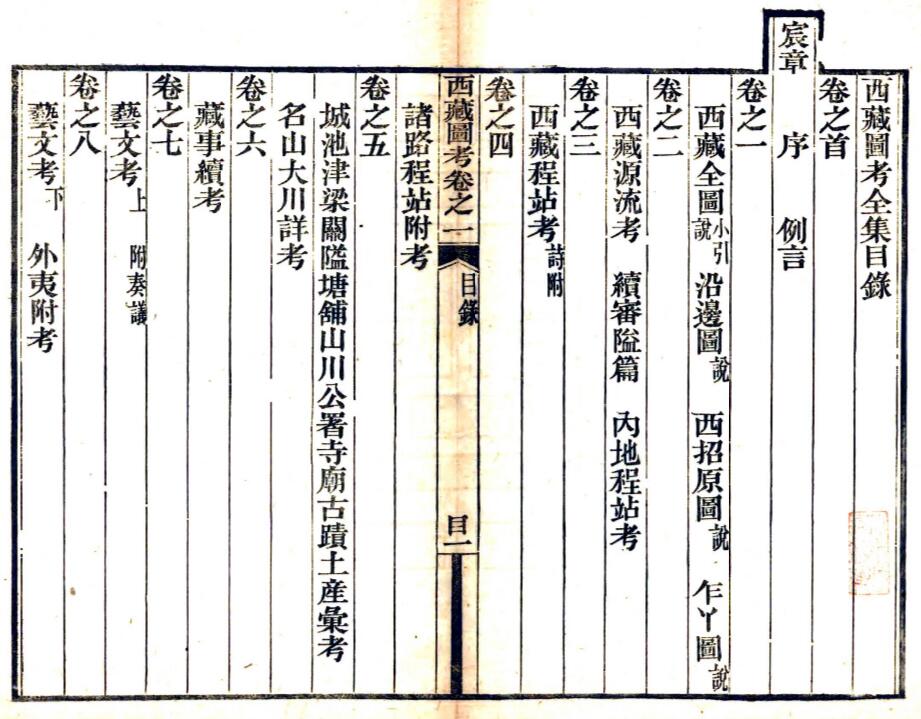 西藏圖考全集目錄
卷之首
宸章 序 例言
卷之一
西藏全圖小引說 沿邊圖說 西招原圖說 乍丫圖說
卷之二
西藏源流考 續審隘篇 內地程站考
卷之三
西藏程站考詩附
卷之四
西藏圖考卷之一 目錄 目一
諸路程站附考
卷之五
城池津梁關隘塘舖山川公署寺廟古蹟土產彙考
名山大川詳考
卷之六
藏事續考
卷之七
藝文考上 附奏議
卷之八
藝文考下 外夷附考